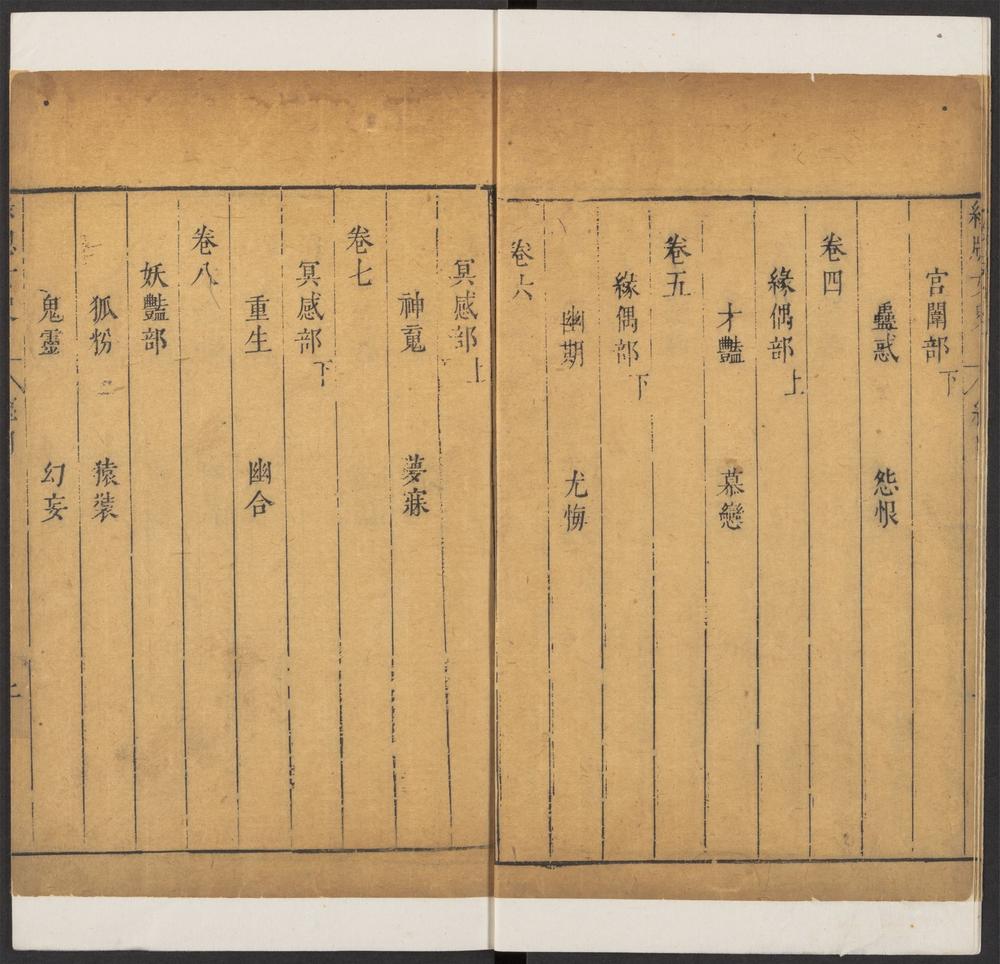 宮闈部下
蠱惑 怨恨
卷四
緣偶部上
才豔 慕戀
卷五
緣偶部下
幽期 尤悔
卷六
冥感部上
神䰟 夢寐
卷七
冥感部下
重生 幽合
卷八
妖豔部
狐粉 猿裝
鬼靈 幻妄